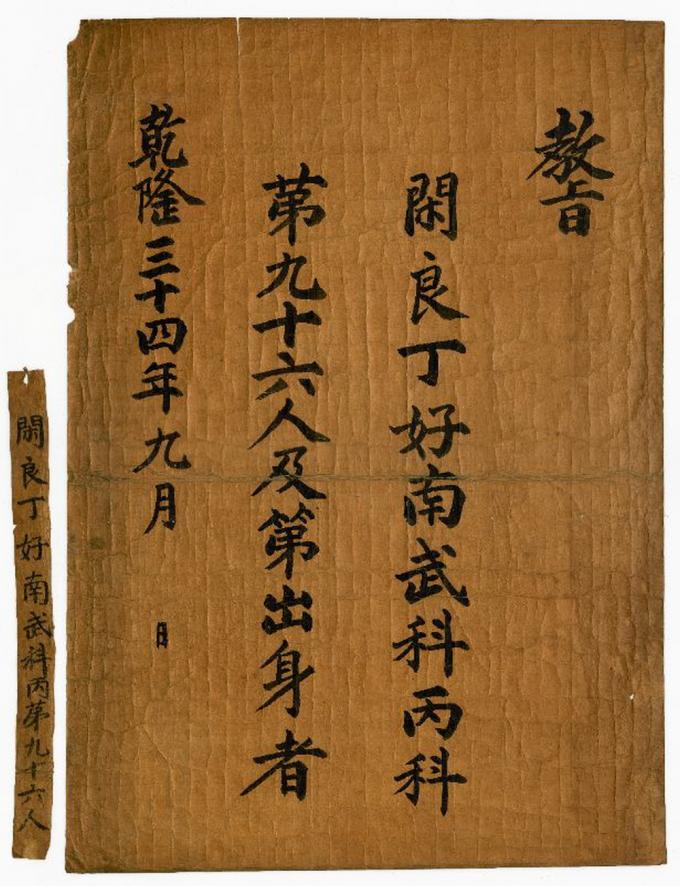 敎旨
閑良丁好南武科丙科
苐九十六人及第出身者
乾隆三十四年九月 日
閑良丁好南武科丙苐九十六人